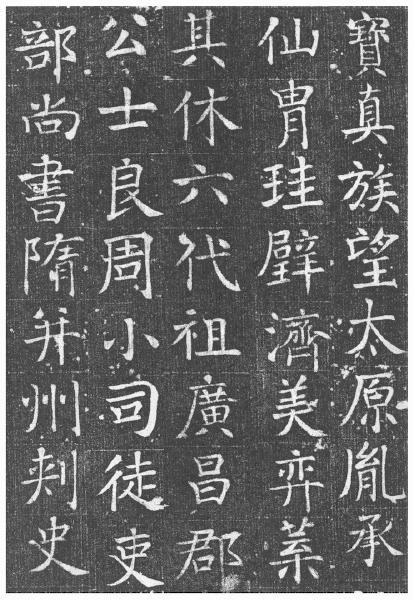 寶真族望太原胤承
仙胄珪璧濟美弈葉
其休六代祖廣昌郡
公士良周小司徒吏
部尚書隋并州刾史